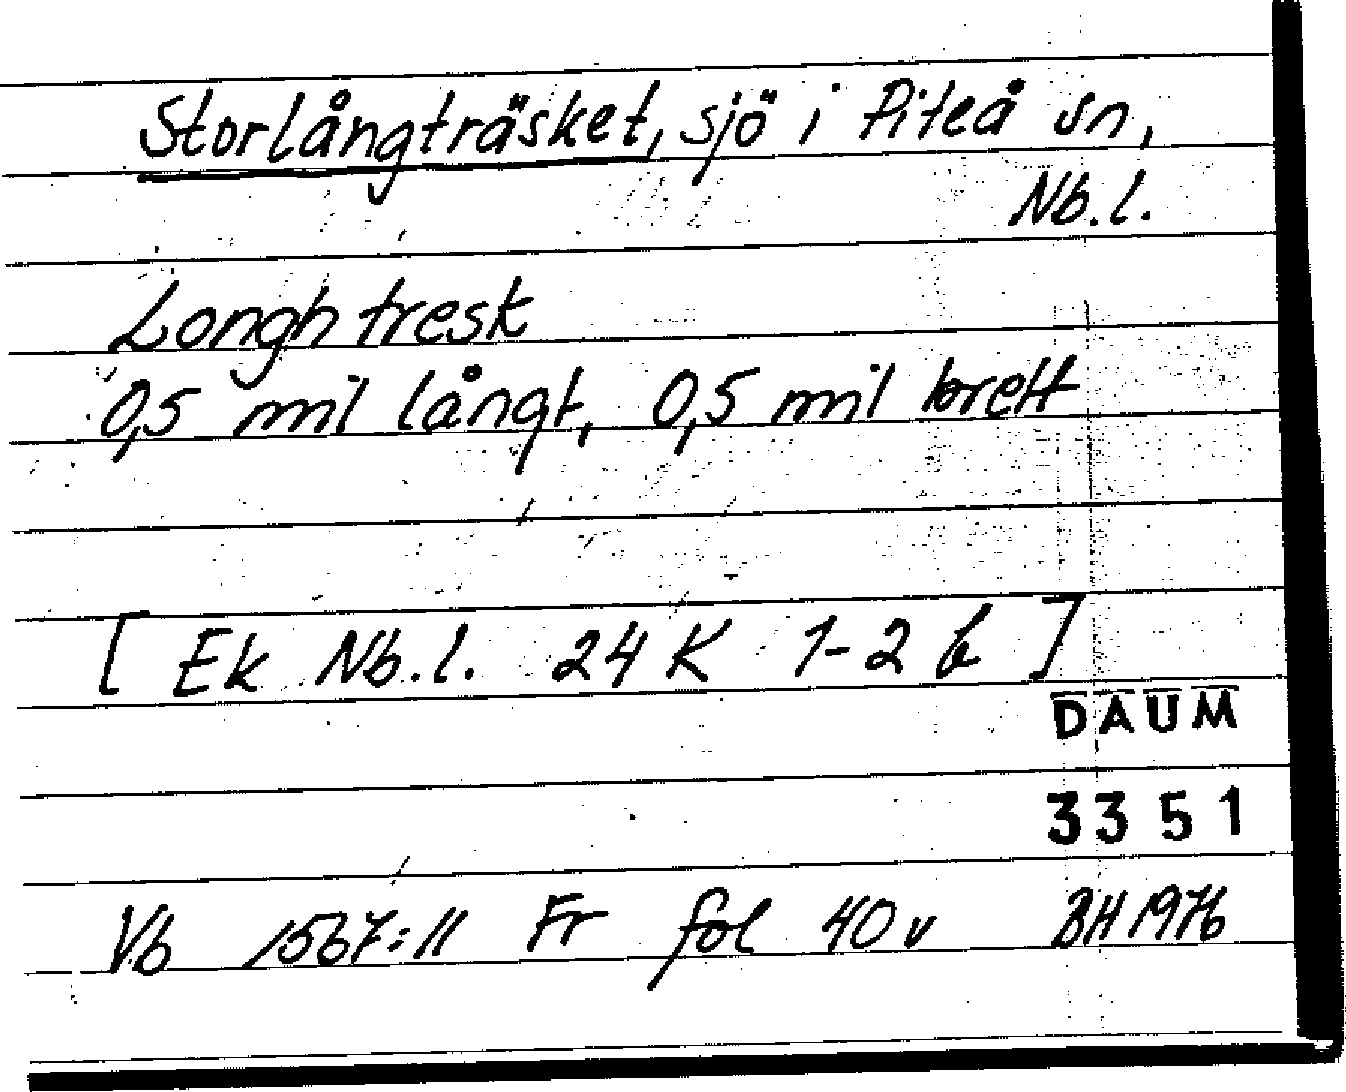 Storlångträsket, sjö i Piteå sn,
Nb.l.
Longh tresk
0,5 mil långt, 0,5 mil brett
[ Ek Nb.l. 24 K 1-2 b ]
DAUM
3351
Vb 1567:11 Fr fol 40 v BH 1976